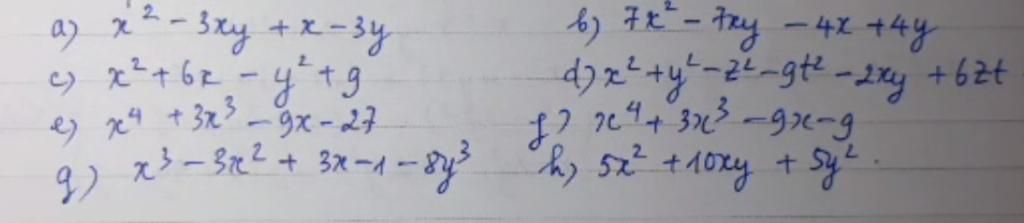 a) x² - 3xy + x - 3y b) 7x² - 7xy - 4x + 4y
c) x² + 6x - y² + 9 d) x² + y² - z² - 9t² - 2xy + 6zt
e) x⁴ + 3x³ - 9x - 27 f) x⁴ + 3x³ - 9x - 9
g) x³ - 3x² + 3x - 1 - 8y³ h) 5x² + 10xy + 5y².